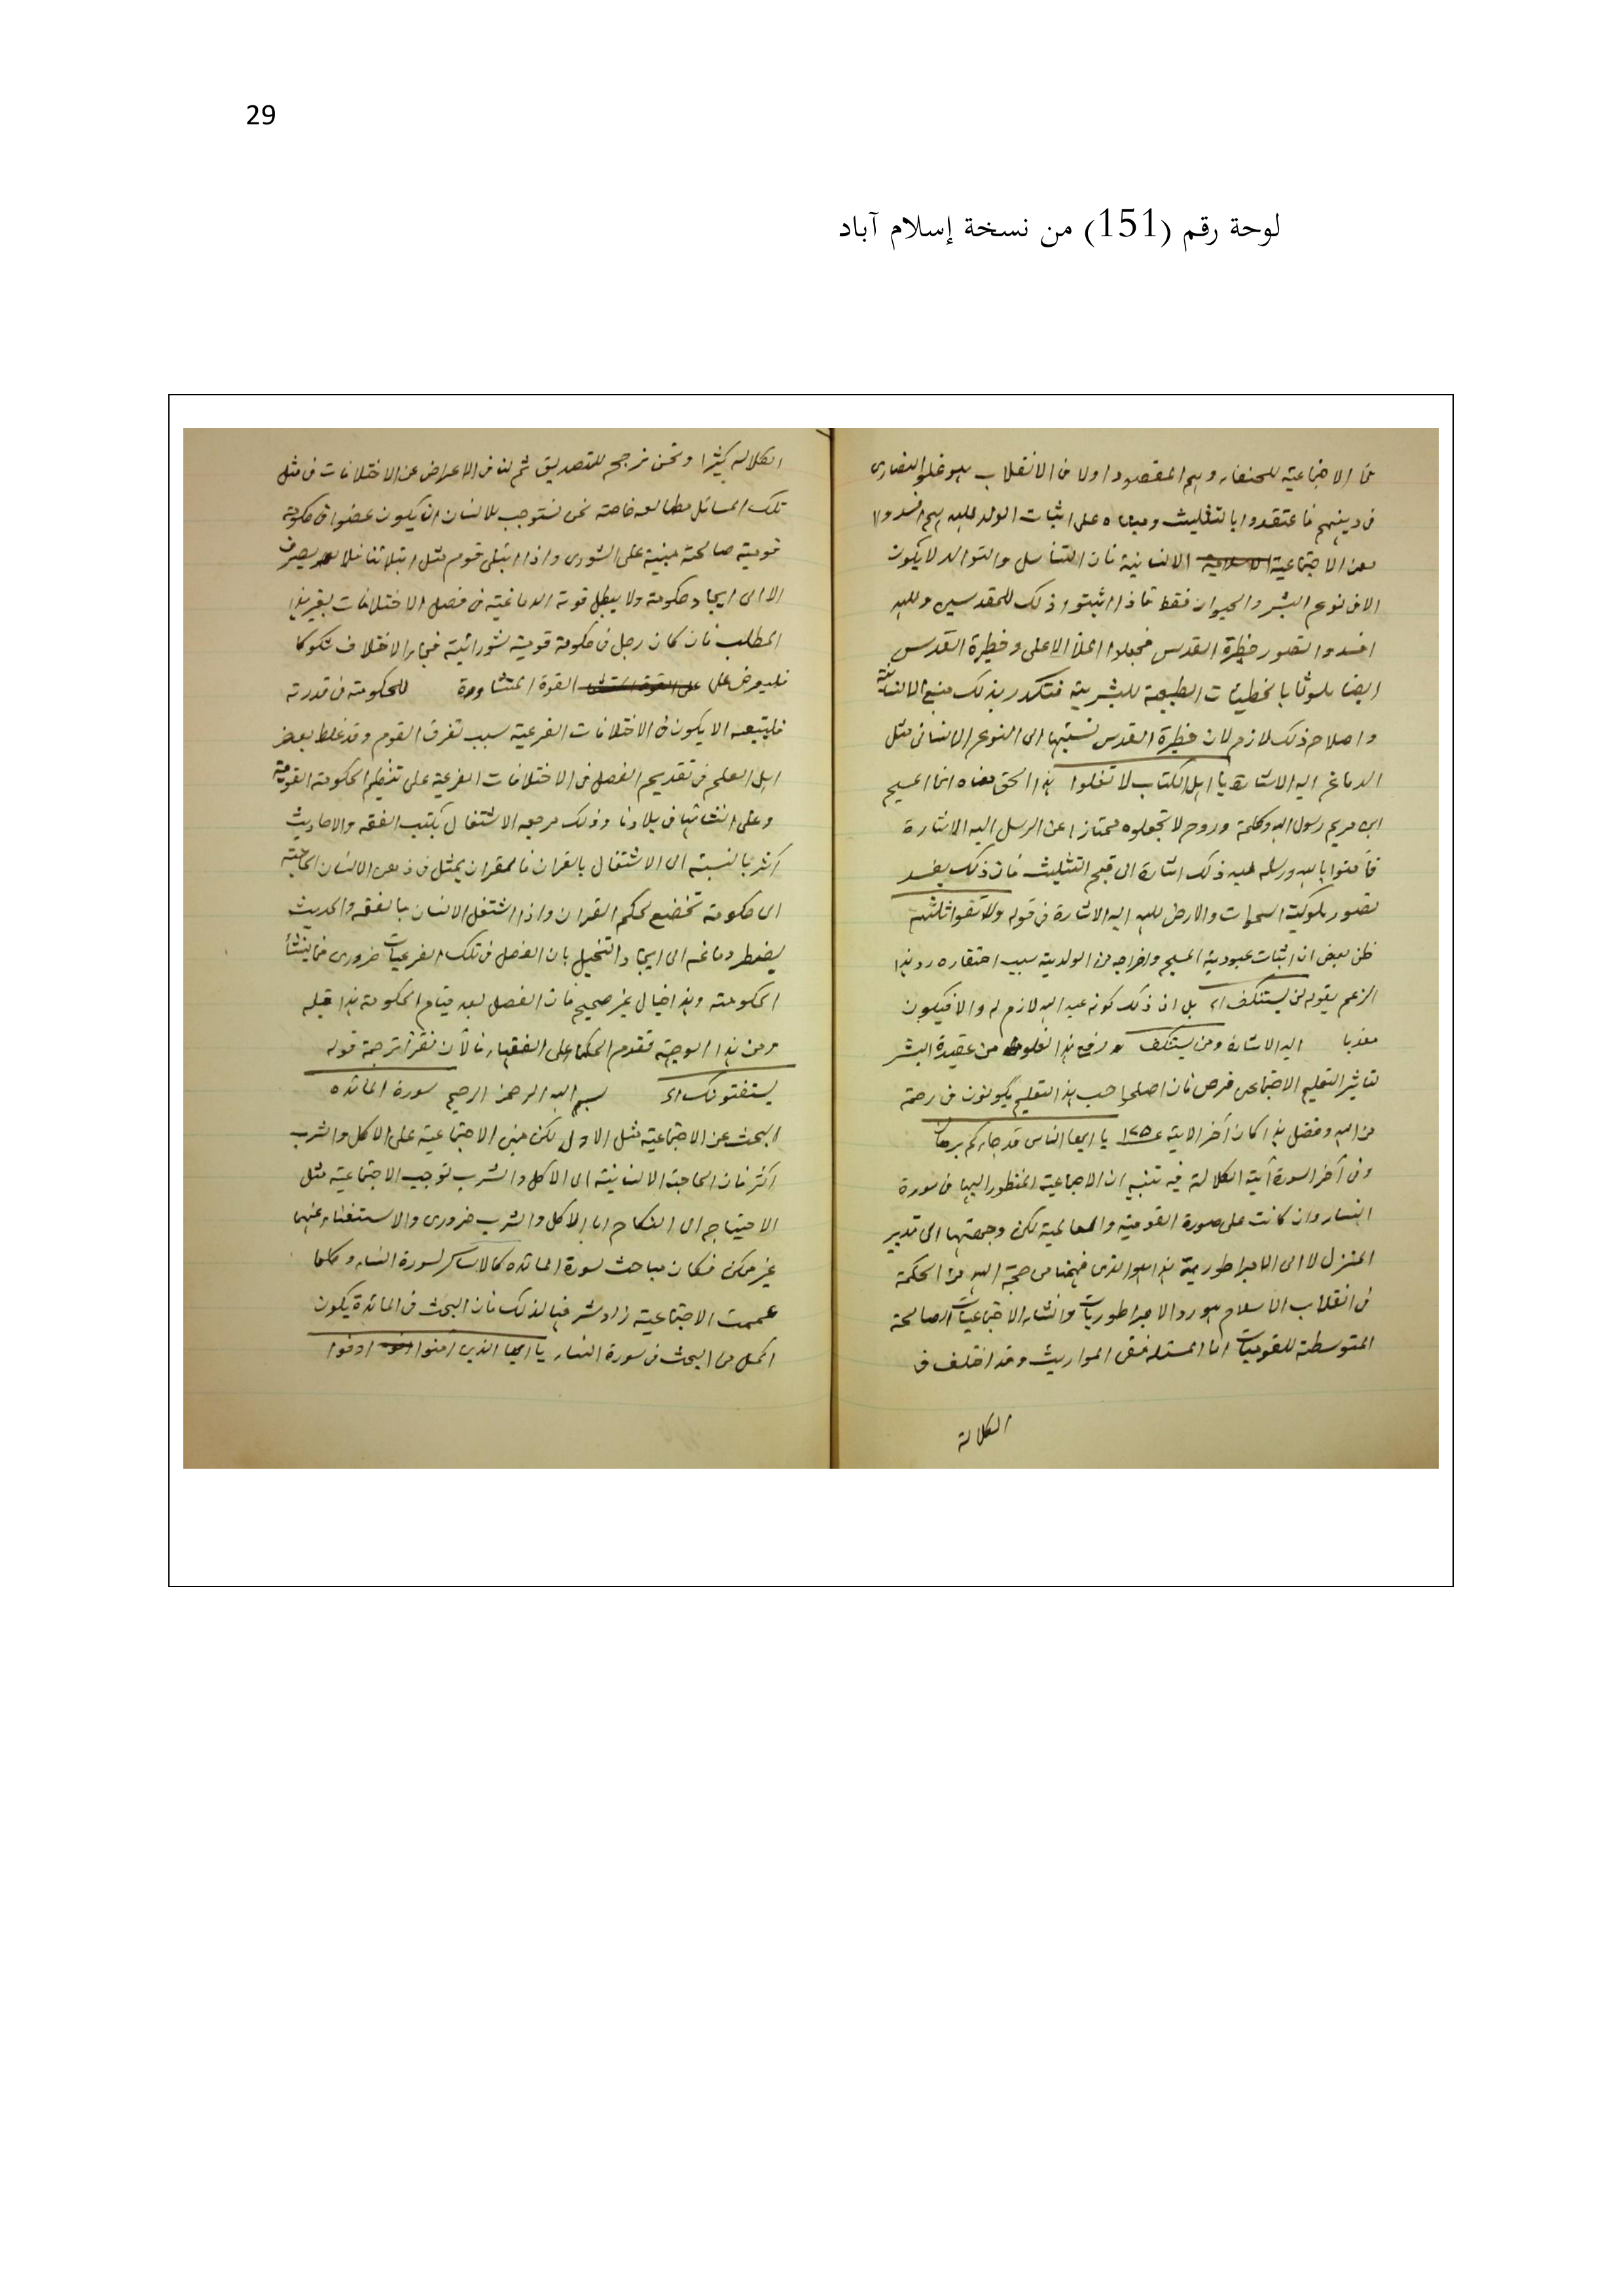 29
لوحة رقم (151) من نسخة إسلام آباد
الاجتماعية للحنفاء وهم المقصود اولا من الانقلاب هو غلو النصارى
فى دينهم فاعتقدوا بالتثليث ومبناه على اثبات الولد لله هم افسدوا
الاجتماعية الانسانية فان التناسل والتوالد لا يكون
الا فى نوع البشر والحيوان فقط فاذا اثبتوا ذلك للمقدسين ولله
افسدوا تصور حظيرة القدس فجعلوا الملأ الاعلى وحظيرة القدس
ايضا ملوثا بالخطيئات الطبيعية للبشرية فتكدر بذلك منبع الانسانية
واصلاح ذلك لازم لان حظيرة القدس نسبتها الى النوع الانسانى مثل
الدماغ اليه الاشارة يا اهل الكتاب لا تغلوا الحق معناه انما المسيح
ابن مريم رسول الله وكلمة وروح لا تجعلوه ممتازا عن الرسل اليه الاشارة
فآمنوا بالله ورسله ذلك اشارة الى قبح التثليث فان ذلك يفسد
تصور ملوكية السموات والارض لله اليه الاشارة فى قوله ولا تقولوا ثلثة
ظن بعض ان اثبات عبودية المسيح واخراجه من الولدية سبب احتقاره رد هذا
الزعم بقوله لن يستنكف بل ان ذلك كونه عبد الله لازم له والا فيكون
معذبا اليه الاشارة ومن يستنكف رفع هذا الغلو من عقيدة البشر
لتأثير التعليم الاجتماعى فرض فان اصلحوا حسب هذا التعليم يكونون فى رحمة
من الله وفضل هذا كان آخر الاية ١٧٥ يا ايها الناس قد جاءكم برهان
وفى آخر السورة آية الكلالة فيه تنبيه ان الاجتماعية المنظور اليها فى سورة
النساء وان كانت على صورة القومية والعالمية لكن وجهتها الى تدبير
المنزل لا الى الامبراطورية هذا هو الذى فهمنا من حجة الله من الحكمة
فى انقلاب الاسلام هو رد الامبراطوريات وانشاء الاجتماعيات الصالحة
المتوسطة للقوميات اما المسئلة ففى المواريث وقد اختلف فى
الكلالة
الكلالة كثيرا ونحن نرجح للتصديق ثم لنا فى الاعراض عن الاختلافات فى مثل
تلك المسائل مطالعه خاصة نحن نستوجب للانسان ان يكون عضوا فى حكومة
قومية صالحة مبنية على الشورى واذا ابتلى قوم مثل ابتلائنا فلا يصرف
الا الى ايجاد حكومة ولا يبطل قوته الدماغية فى فصل الاختلافات بغير هذا
المطلب فان كان رجل فى حكومة قومية شورائية فجاء الاختلاف شكوكا
فليعرض على القوة المتشاورة للحكومة فى قدرته
فليتبعه الا يكون فى الاختلافات الفرعية سبب تفرق القوم وقد غلط بعض
اهل العلم فى تقديم الفصل فى الاختلافات الفرعية على تنظيم الحكومة القومية
وعلى انشائها فى بلادنا وذلك مرجعه الاشتغال بكتب الفقه والاحاديث
اكثر بالنسبة الى الاشتغال بالقران فالقران يمثل فى ذهن الانسان الحاجة
الى حكومة تخضع لحكم القران واذا اشتغل الانسان بالفقه والحديث
يضطر دماغه الى ايجاد التخيل بان الفصل فى تلك الفرعيات ضرورى فما ينشأ
الحكومة وهذا خيال غير صحيح فان الفصل بعد قيام الحكومة لا قبله
ومن هذا الوجهة تقدم الحكماء على الفقهاء فالآن نقرأ ترجمة قوله
يستفتونك بسم الله الرحمن الرحيم سورة المائده
البحث عن الاجتماعية مثل الاول لكن مبنى الاجتماعية على الاكل والشرب
اكثر فان الحاجة الانسانية الى الاكل والشرب توجب الاجتماعية مثل
الاحتياج الى النكاح اما الاكل والشرب ضرورى والاستغناء عنهما
غير ممكن فكان مباحث سورة المائده كالاساس لسورة النساء وكلما
عممت الاجتماعية زاد شرفها لذلك فان البحث فى المائدة يكون
اكمل من البحث فى سورة النساء يا ايها الذين آمنوا اوفوا